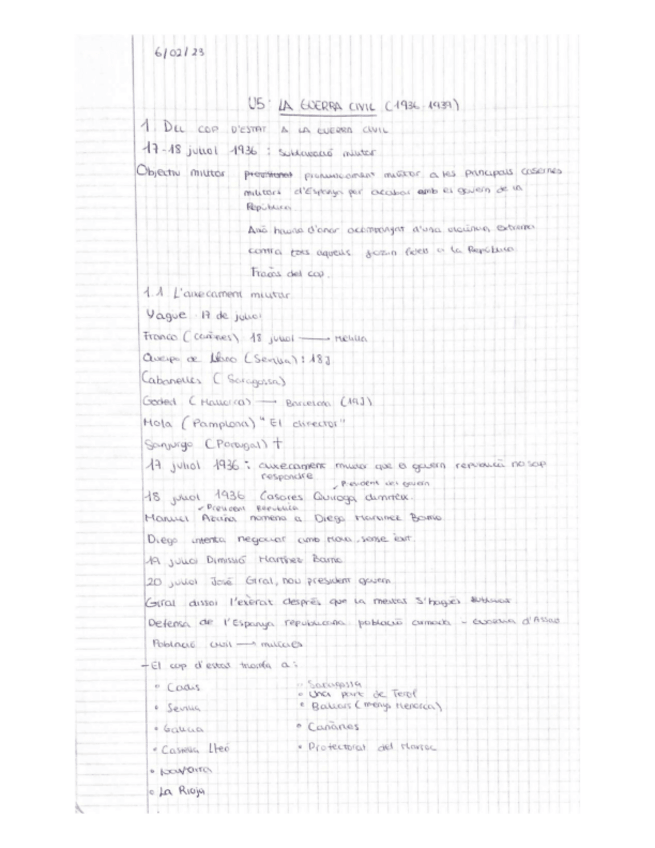 6/02/23
U5: LA GUERRA CIVIL (1936-1939)
1. DEL COP D'ESTAT A LA GUERRA CIVIL
17-18 juliol 1936: Sublevació militar
Objectiu militar pronunciament militar a les principals casernes
militars d'Espanya per acabar amb el govern de la
República
Això hauria d'anar acompanyat d'una violència extrema
contra tots aquells fidels a la República.
Fracàs del cop.
1.1 L'aixecament militar
Vague 17 de juliol
Franco (Canàries) 18 juliol → Melilla
Queipo de Llano (Sevilla): 18J
Cabanelles (Saragossa)
Goded (Mallorca) → Barcelona (19J)
Mola (Pamplona) "El director"
Sanjurjo (Portugal) †
17 juliol 1936: aixecament militar que el govern republicà no sap
respondre
President del govern
18 juliol 1936 Casares Quiroga dimiteix.
President República
Manuel Azaña nomena a Diego Martínez Barrio
Diego intenta negociar amb Mola, sense èxit.
19 juliol Dimissió Martínez Barrio
20 juliol José Giral, nou president govern
Giral dissol l'exèrcit després que la meitat s'hagués
Defensa de l'Espanya republicana població armada - Guàrdia d'Assalt
Població civil → milícies
- El cop d'estat triomfa a:
• Cadis
• Saragossa
• Una part de Terol
• Sevilla
• Balears (menys Menorca)
• Galícia
• Canàries
• Castella Lleó
• Protectorat del Marroc
• Navarra
• La Rioja